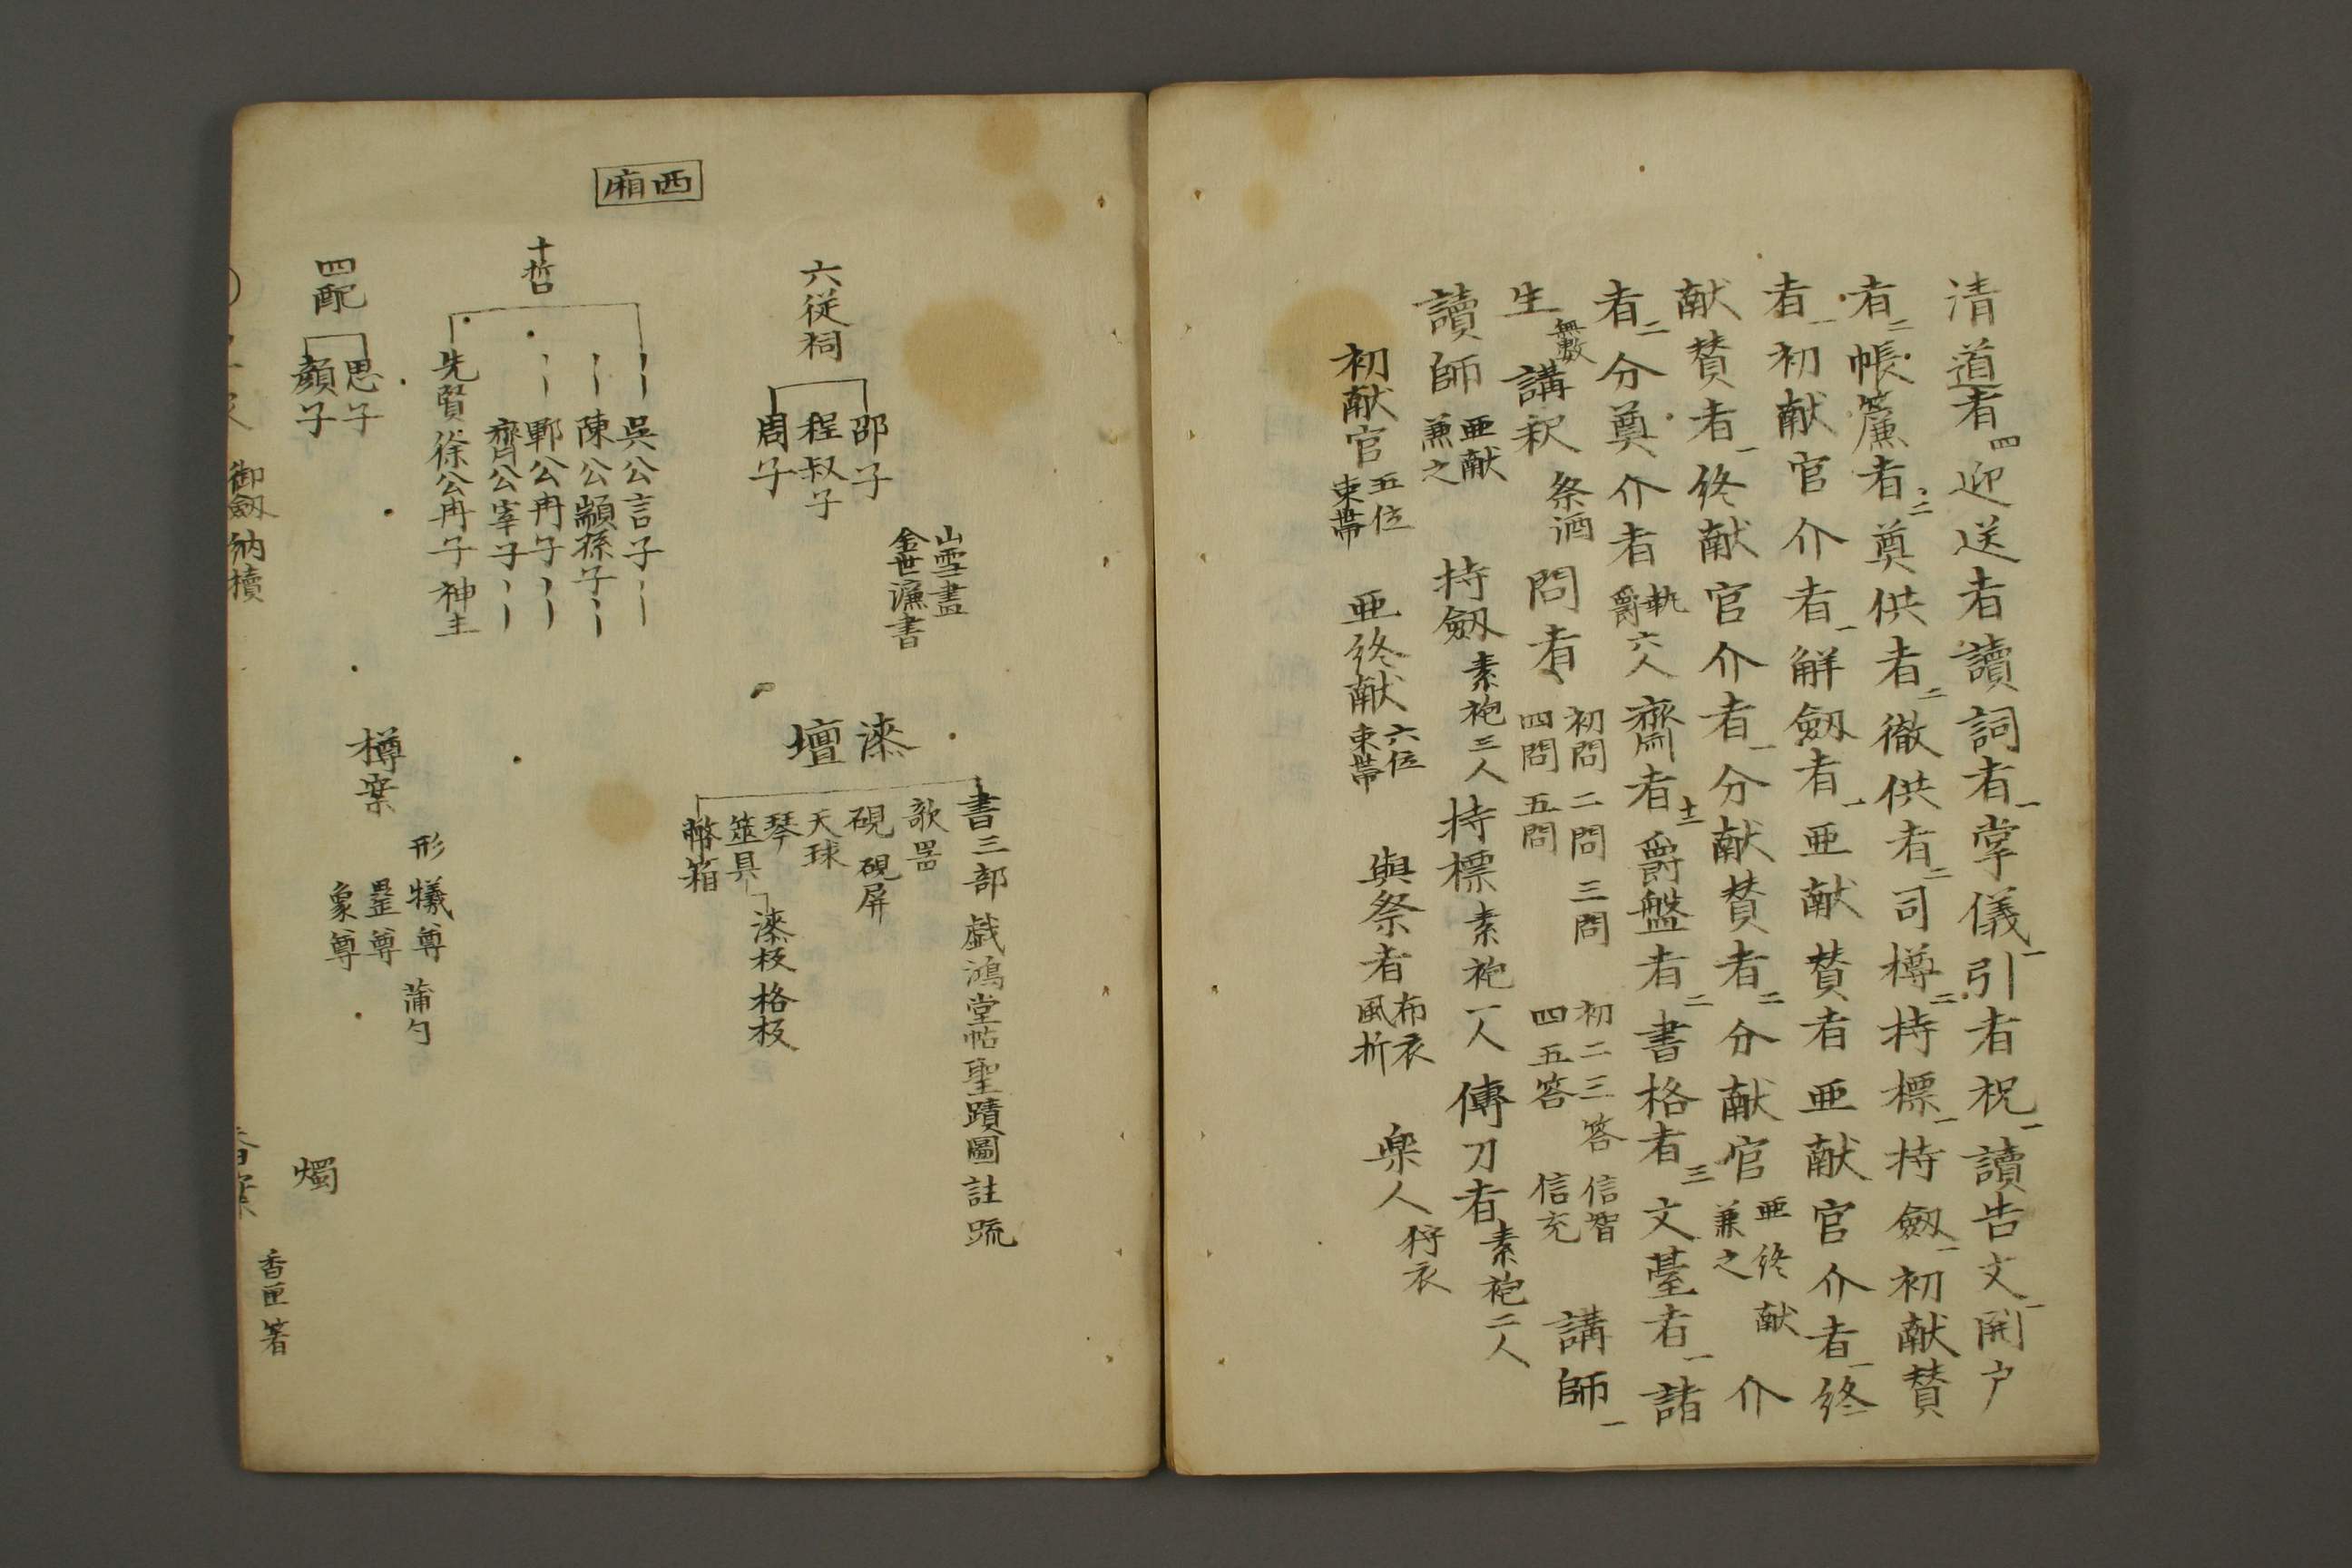 清道者四迎送者讀詞者一掌儀一引者祝一讀告文一開戸
者二帳簾者二奠供者二徹供者二司樽二持標一持劔一初献賛
者一初献官介者一解劔者一亜献賛者亜献官介者一終
献賛者一終献官介者一分献賛者二分献官亜終献兼之介
者二分奠介者執爵六人齋者十二爵盤者二書格者三文臺者一諸
生無数講釈祭酒問者初問二問三問四問五問初二三答四五答信智信充講師一
讀師亜献兼之持劔素袍三人持標素袍一人傳刀者素袍二人
初献官五位束帯亜終献六位束帯與祭者布衣風折楽人狩衣
西廂
山雪畫
金世濂書
六従祠
邵子
程叔子
周子
漆壇
書三部戯鴻堂帖聖蹟圖註䟽
歌器
硯硯屏
天球
琴
筮具漆板格板
幣箱
十哲
〻〻呉公言子〻〻
〻陳公顓孫子〻
〻〻鄆公冉子〻〻
齊公宰子〻〻
先賢徐公冉子神主
四配
思子
顔子
樽案
形犠尊蒲勺
罍尊
象尊
燭
御劔納櫝
香案
香匣箸